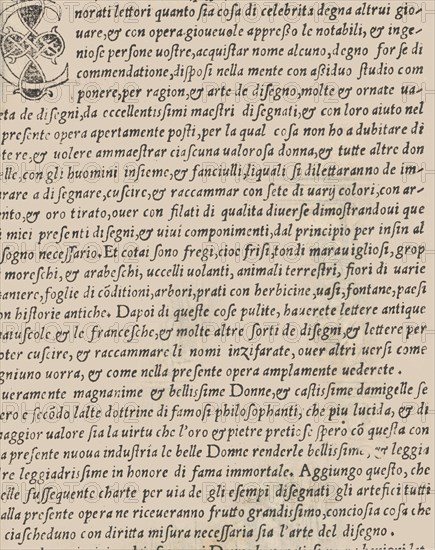 norati lettori quanto sia cosa di celebrita degna altrui gio⸗
uare, & con opera gioueuole appresso le notabili, & inge⸗
niose persone uostre, acquistar nome alcuno, degno forse di
commendatione, disposi nella mente con assiduo studio com
ponere, per ragion, & arte de disegno, molte & ornate ua⸗
eta de disegni, da eccellentissimi maestri disegnati, & con loro aiuto nel
presente opera apertamente posti, per la qual cosa non ho a dubitare di
tere, & uolere ammaestrar ciascuna ualorosa donna, & tutte altre don
elle, con gli huomini insieme, & fanciulli, liquali si diletteranno de im⸗
arare a disegnare, cuscire, & raccammar con sete di uarij colori, con ar⸗
ento, & oro tirato, ouer con filati di qualita diuerse dimostrandoui que
i miei presenti disegni, & uiui componimenti, dal principio per insin al
sogno necessario. Et cotai sono fregi, cioe frisi, tondi marauigliosi, grop
moreschi, & arabeschi, uccelli uolanti, animali terrestri, fiori di uarie
antere, foglie di cōditioni, arbori, prati con herbicine, uasi, fontane, paesi
on historie antiche. Dapoi di queste cose pulite, hauerete lettere antique
atuscole & le francesche, & molte altre sorti de disegni, & lettere per
oter cuscire, & raccammare li nomi inzifarate, ouer altri uersi come
gniuno uorra, & come nella presente opera amplamente uederete.
ueramente magnanime & bellissime Donne, & castissime damigelle se
ero e secōdo lalte dottrine di famosi philosophanti, che piu lucida, & di
maggior ualore sia la uirtu che l'oro & pietre pretiose spero cō questa con
la presente nuoua industria le belle Donne renderle bellissime, & leggia
dre leggiadrissime in honore di fama immortale. Aggiungo questo, che
elle sussequente charte per uia de gli esempi disegnati gli artefici tutti
alla presente opera ne riceueranno frutto grandissimo, conciosia cosa che
ciascheduno con diritta misura necessaria sia l'arte del disegno.